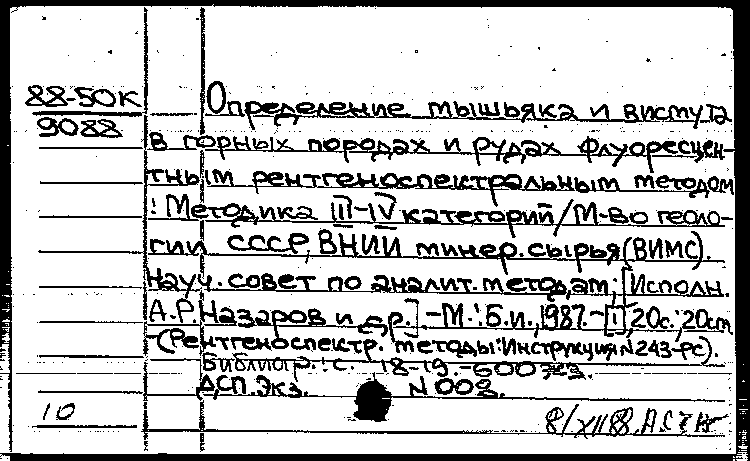 88-50К
9088
Определение мышьяка и висмута
в горных породах и рудах флуоресцен-
тным рентгеноспектральным методом
: Методика III-IV категорий/М-во геоло-
гии СССР, ВНИИ минер.сырья(ВИМС).
Науч.совет по аналит.методам; [Исполн.
А.Р.Назаров и др.].-М.:Б.и.,1987.-[1],20с.;20см
-(Рентгеноспектр. методы:Инструкция N243-РС).
Библиогр.: с. 18-19.-600
ДСП.Экз. N 008.
10
8/XII 88.